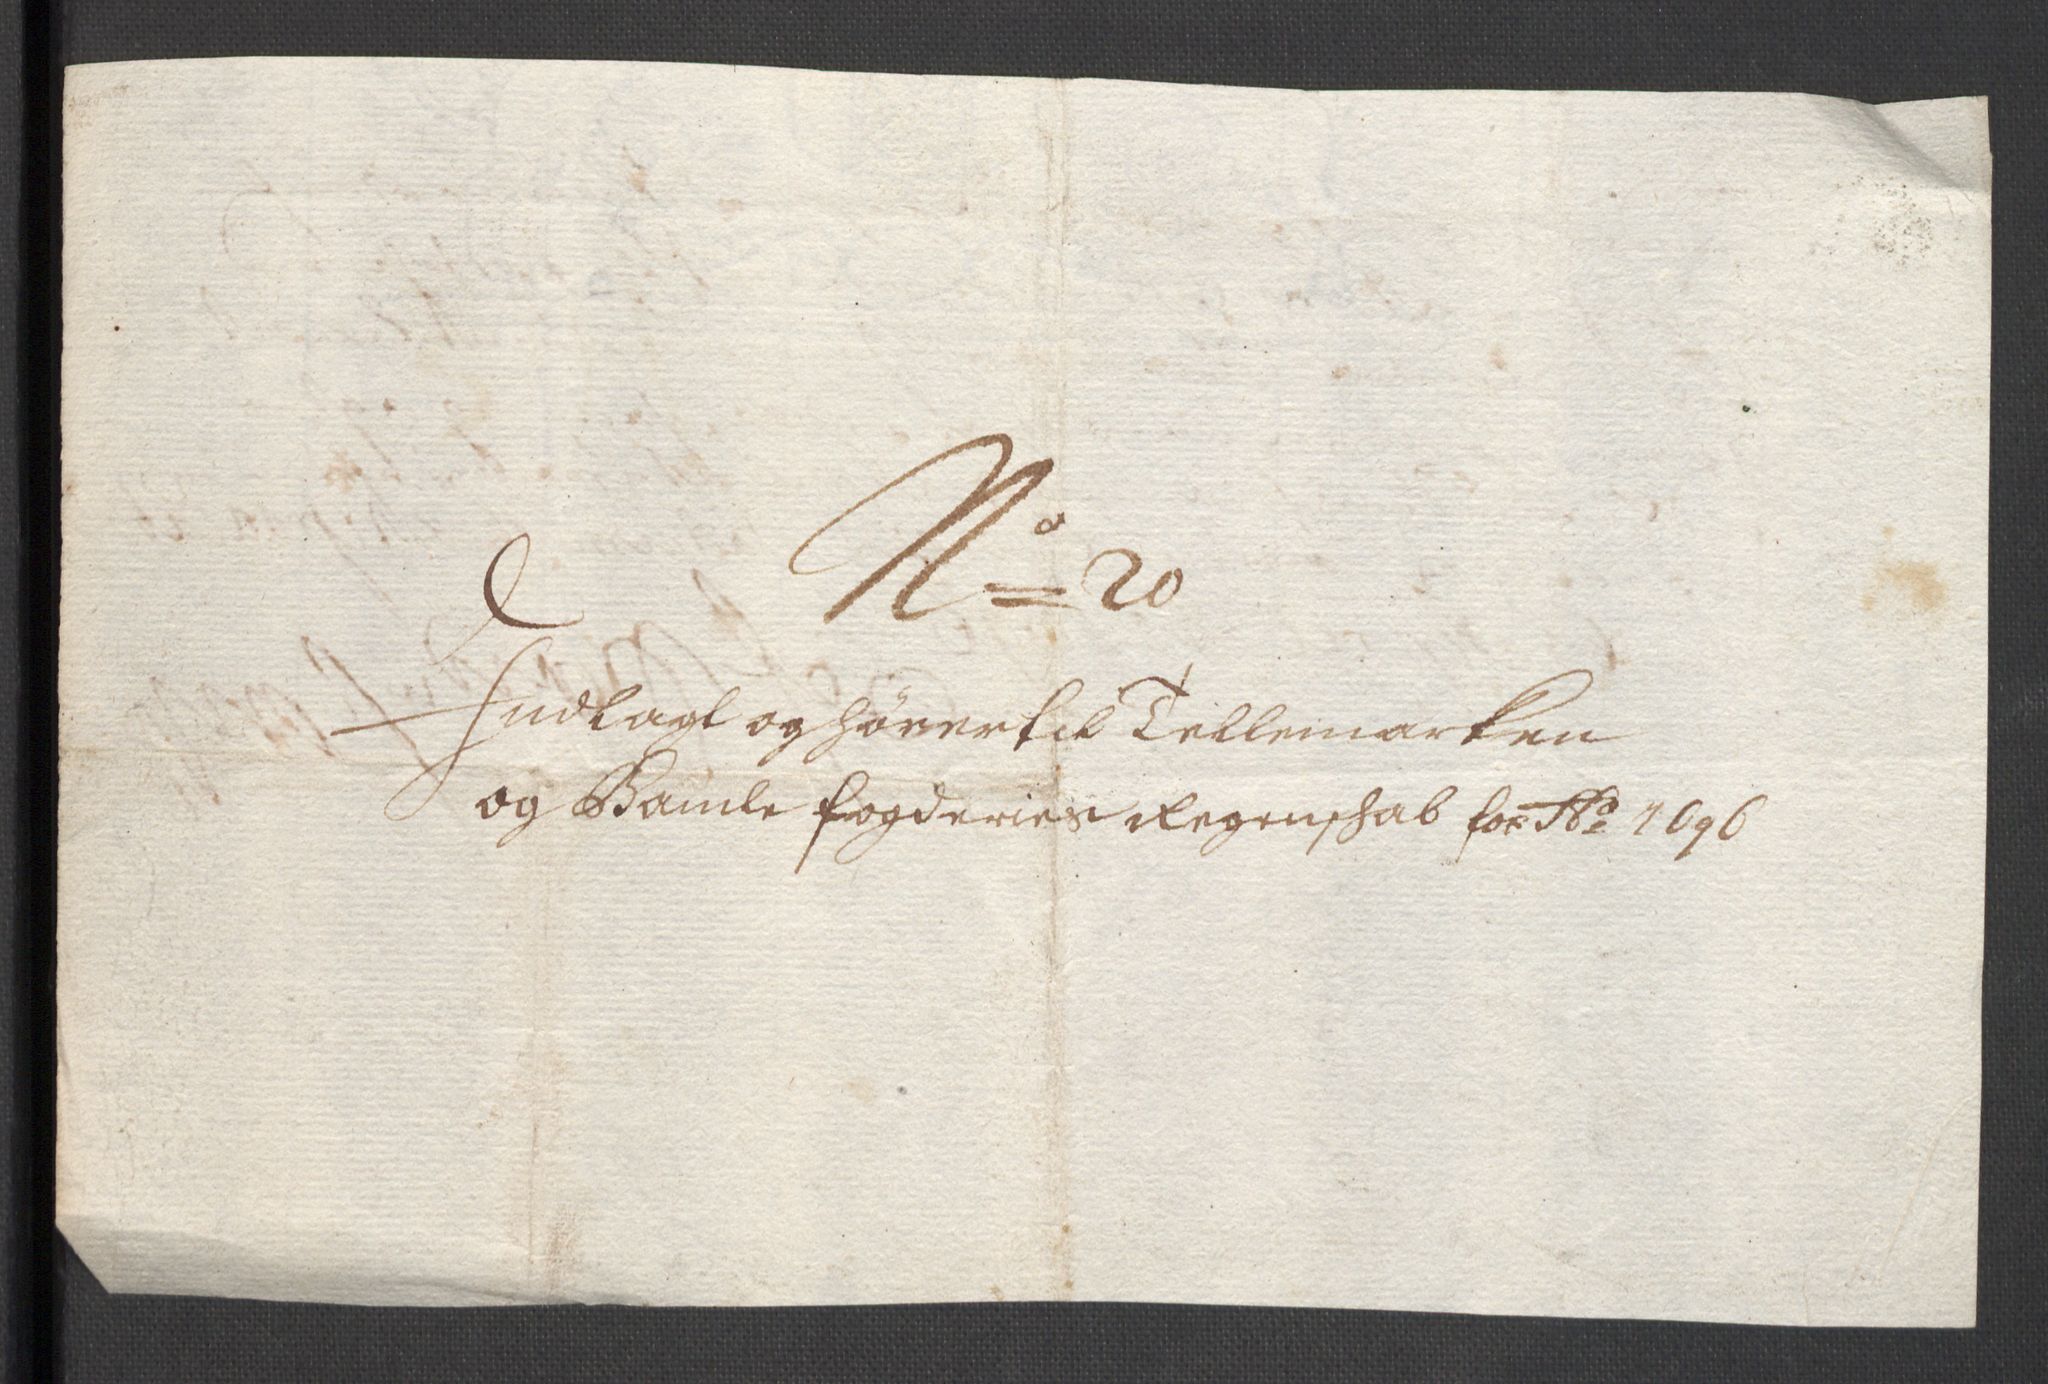 No = 20
Indlagt og hører til Tellemarken
og Bamle fogderies Regenschab for Ao 1696